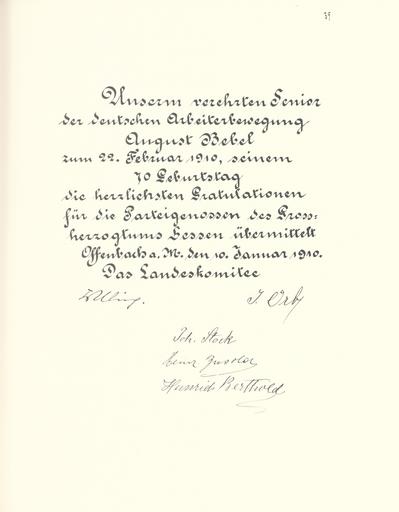 39
Unserm verehrten Senior
der deutschen Arbeiterbewegung
August Bebel
zum 22. Februar 1910, seinem
70 Geburtstag
die herzlichsten Gratulationen
für die Parteigenossen des Gross=
herzogtums Hessen übermittelt
Offenbach a. M. den 10. Januar 1910.
Das Landeskomitee
Ulrich.
J. Orb
Joh. Stock
Heinrich Berthold